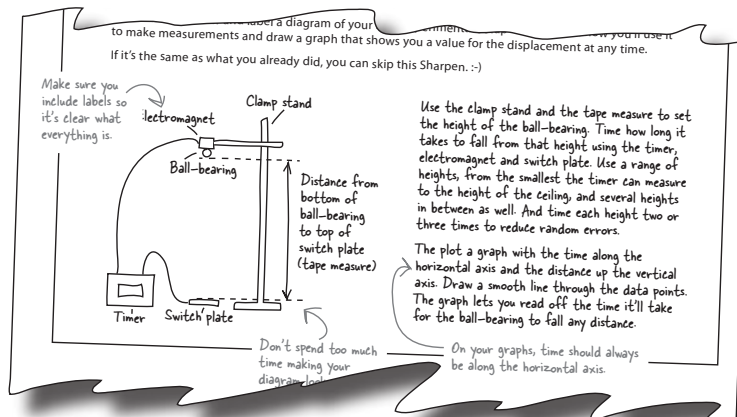 label a diagram of your
you'll use it
to make measurements and draw a graph that shows you a value for the displacement at any time.
If it's the same as what you already did, you can skip this Sharpen. :-)
Make sure you
include labels so
it's clear what
everything is.
lectromagnet
Clamp stand
Ball-bearing
Distance from
bottom of
ball-bearing
to top of
switch plate
(tape measure)
Timer
Switch plate
Don't spend too much
time making your
diagram
Use the clamp stand and the tape measure to set
the height of the ball-bearing. Time how long it
takes to fall from that height using the timer,
electromagnet and switch plate. Use a range of
heights, from the smallest the timer can measure
to the height of the ceiling, and several heights
in between as well. And time each height two or
three times to reduce random errors.
The plot a graph with the time along the
horizontal axis and the distance up the vertical
axis. Draw a smooth line through the data points.
The graph lets you read off the time it'll take
for the ball-bearing to fall any distance.
On your graphs, time should always
be along the horizontal axis.